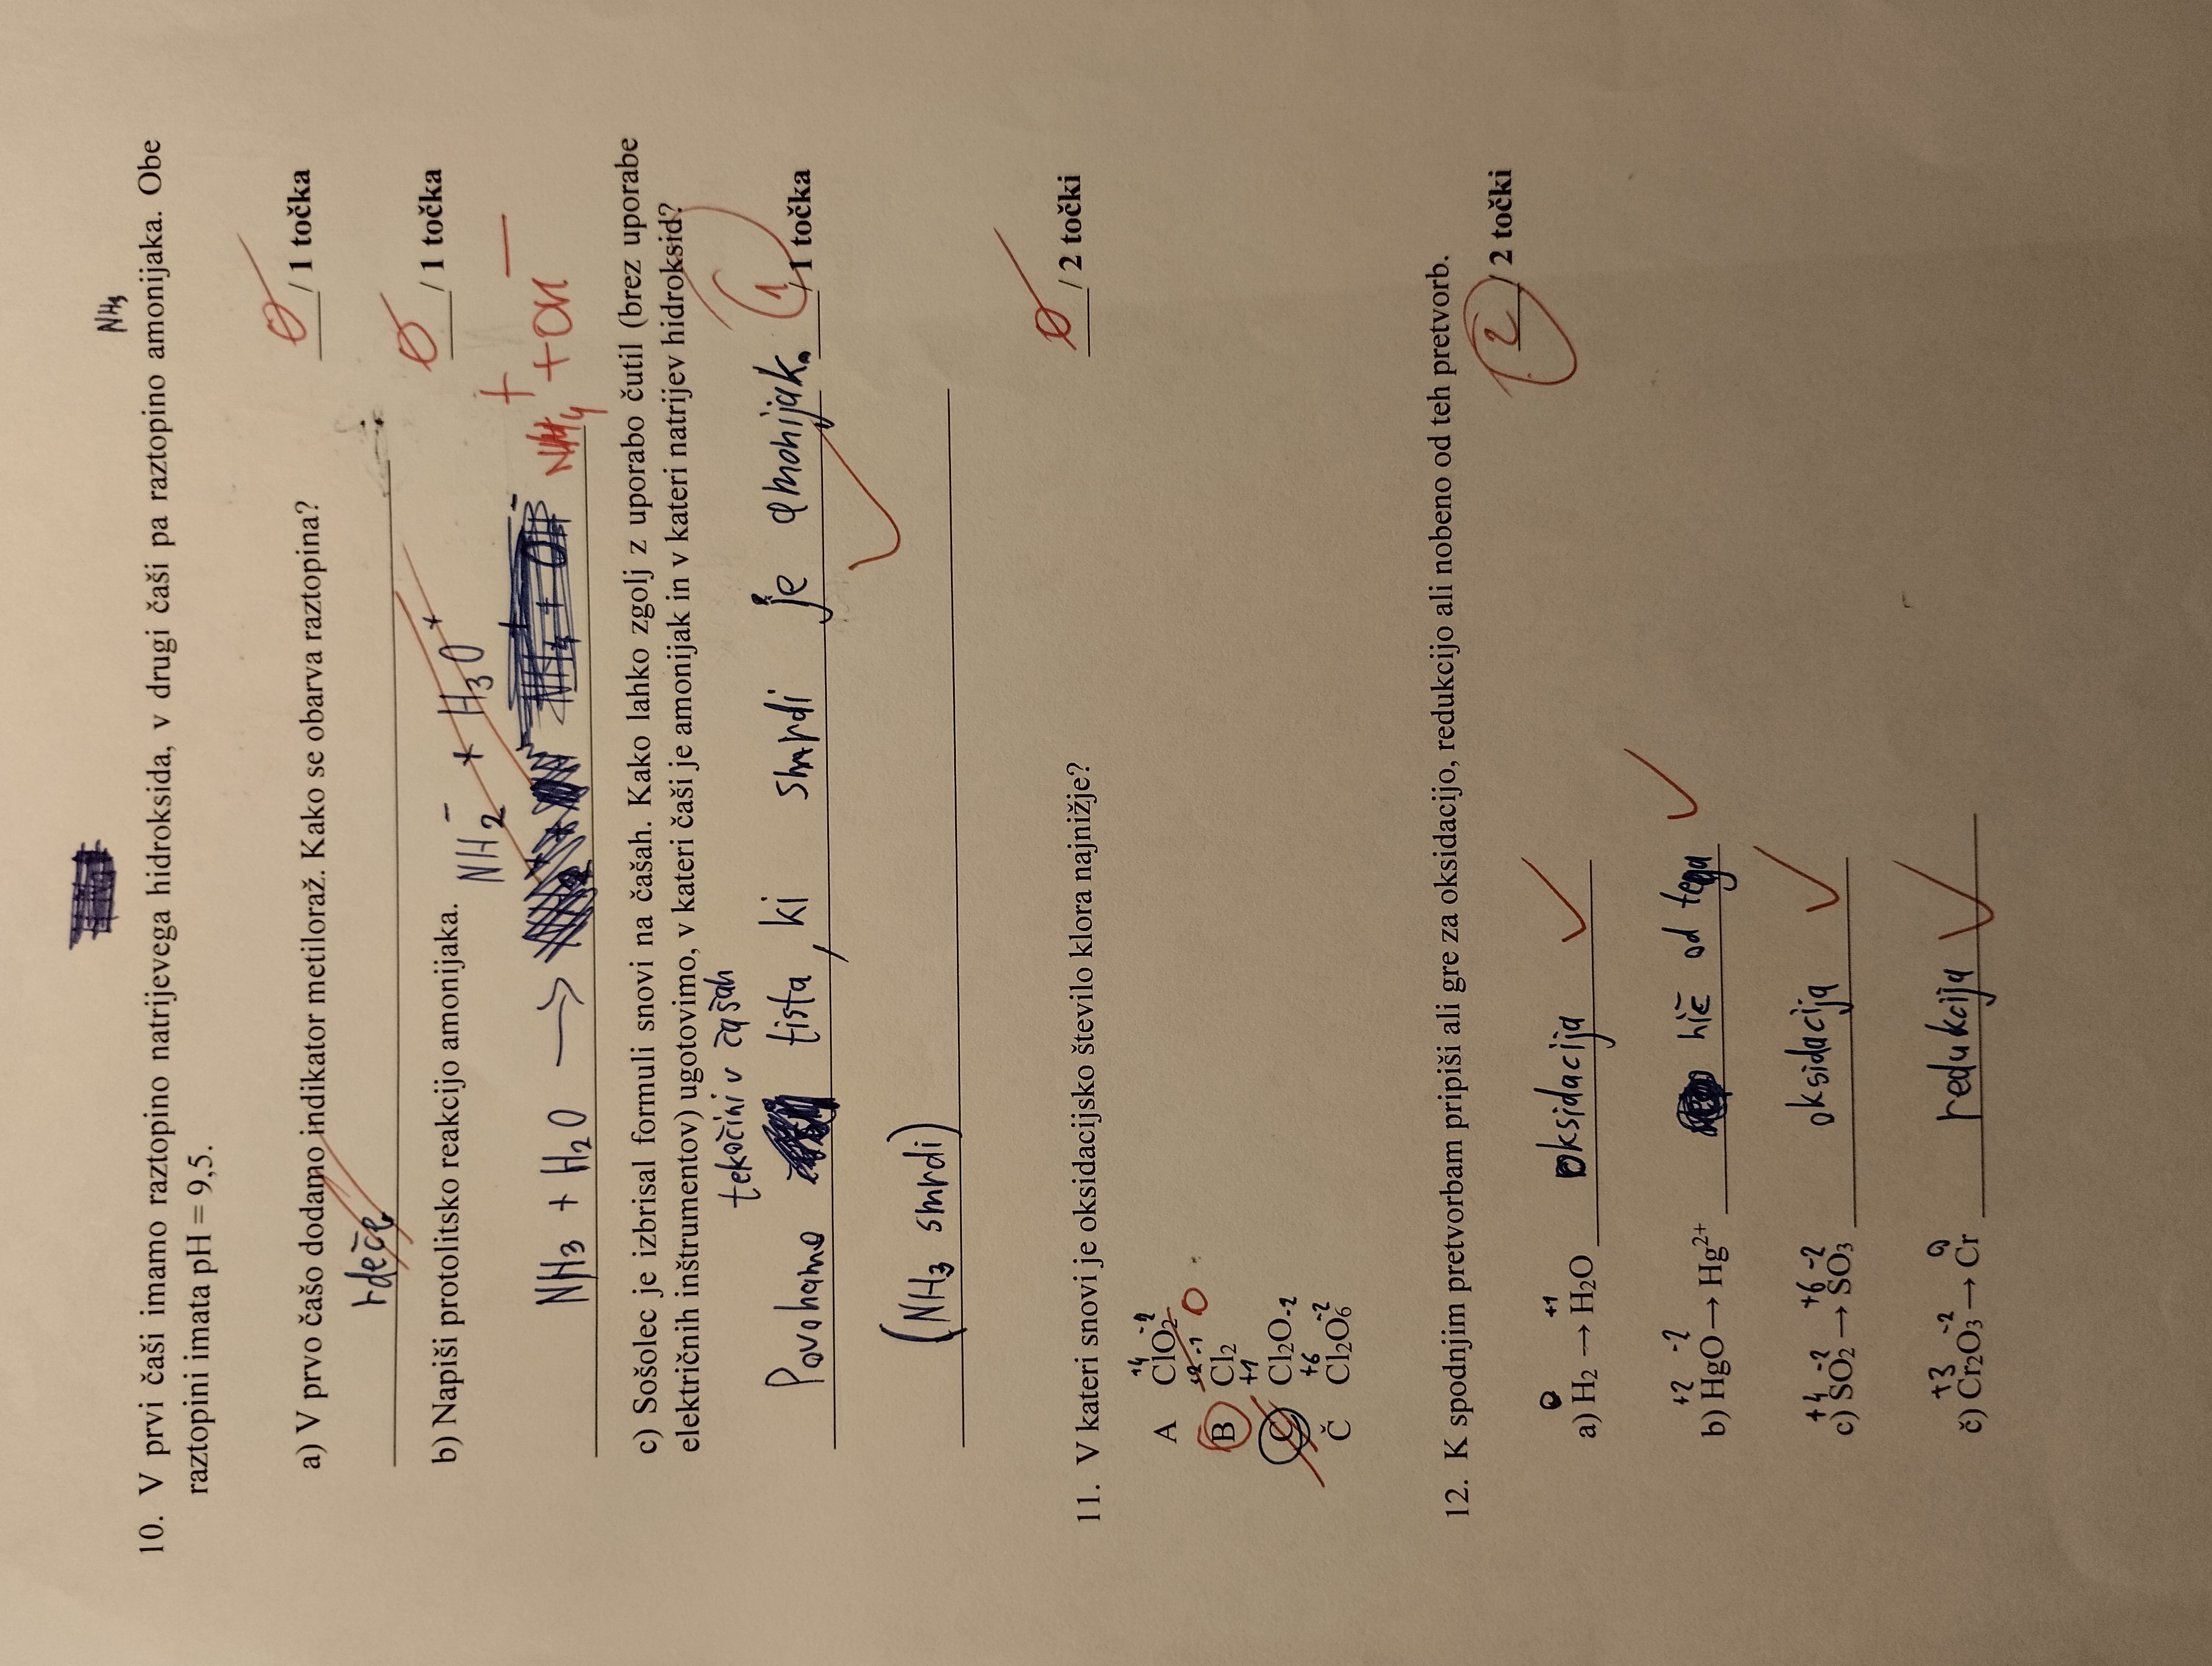 NH3
10. V prvi čaši imamo raztopino natrijevega hidroksida, v drugi čaši pa raztopino amonijaka. Obe
raztopini imata pH = 9,5.
0 / 1 točka
a) V prvo čašo dodamo indikator metiloraž. Kako se obarva raztopina?
rdeče
0 / 1 točka
b) Napiši protolitsko reakcijo amonijaka.
NH2⁻ + H3O⁺
NH3 + H2O → NH4⁺ + OH⁻ NH4⁺ + OH⁻
c) Sošolec je izbrisal formuli snovi na čašah. Kako lahko zgolj z uporabo čutil (brez uporabe
električnih inštrumentov) ugotovimo, v kateri čaši je amonijak in v kateri natrijev hidroksid?
tekočini v čašah
Povohamo tista, ki smrdi je amonijak. 1 / 1 točka
(NH3 smrdi)
0 / 2 točki
11. V kateri snovi je oksidacijsko število klora najnižje?
+4 -2
A ClO2
+2 -1 0
B Cl2
+1
C Cl2O -2
+6 -2
Č Cl2O6
12. K spodnjim pretvorbam pripiši ali gre za oksidacijo, redukcijo ali nobeno od teh pretvorb.
2 / 2 točki
0 +1
a) H2 → H2O oksidacija
+2 -2
b) HgO → Hg²⁺ nič od tega
+4 -2 +6 -2
c) SO2 → SO3 oksidacija
+3 -2 0
č) Cr2O3 → Cr redukcija